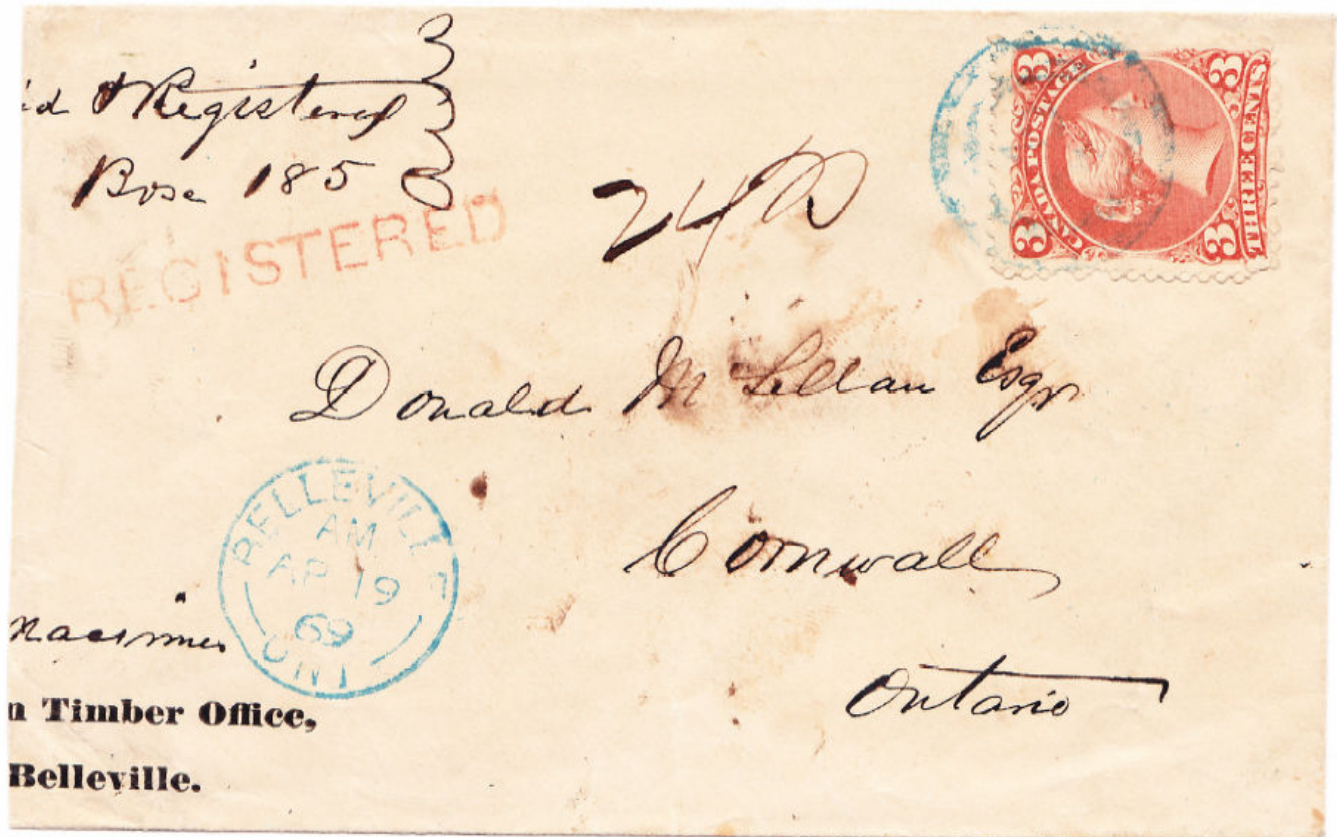 id & Registered
Box 185
REGISTERED
24
3 CANADA POSTAGE 3
3 THREE CENTS 3
Donald McLellan Esqr
Cornwall
Ontario
BELLEVILLE
AM
AP 19
69
ONT
n Timber Office,
Belleville.